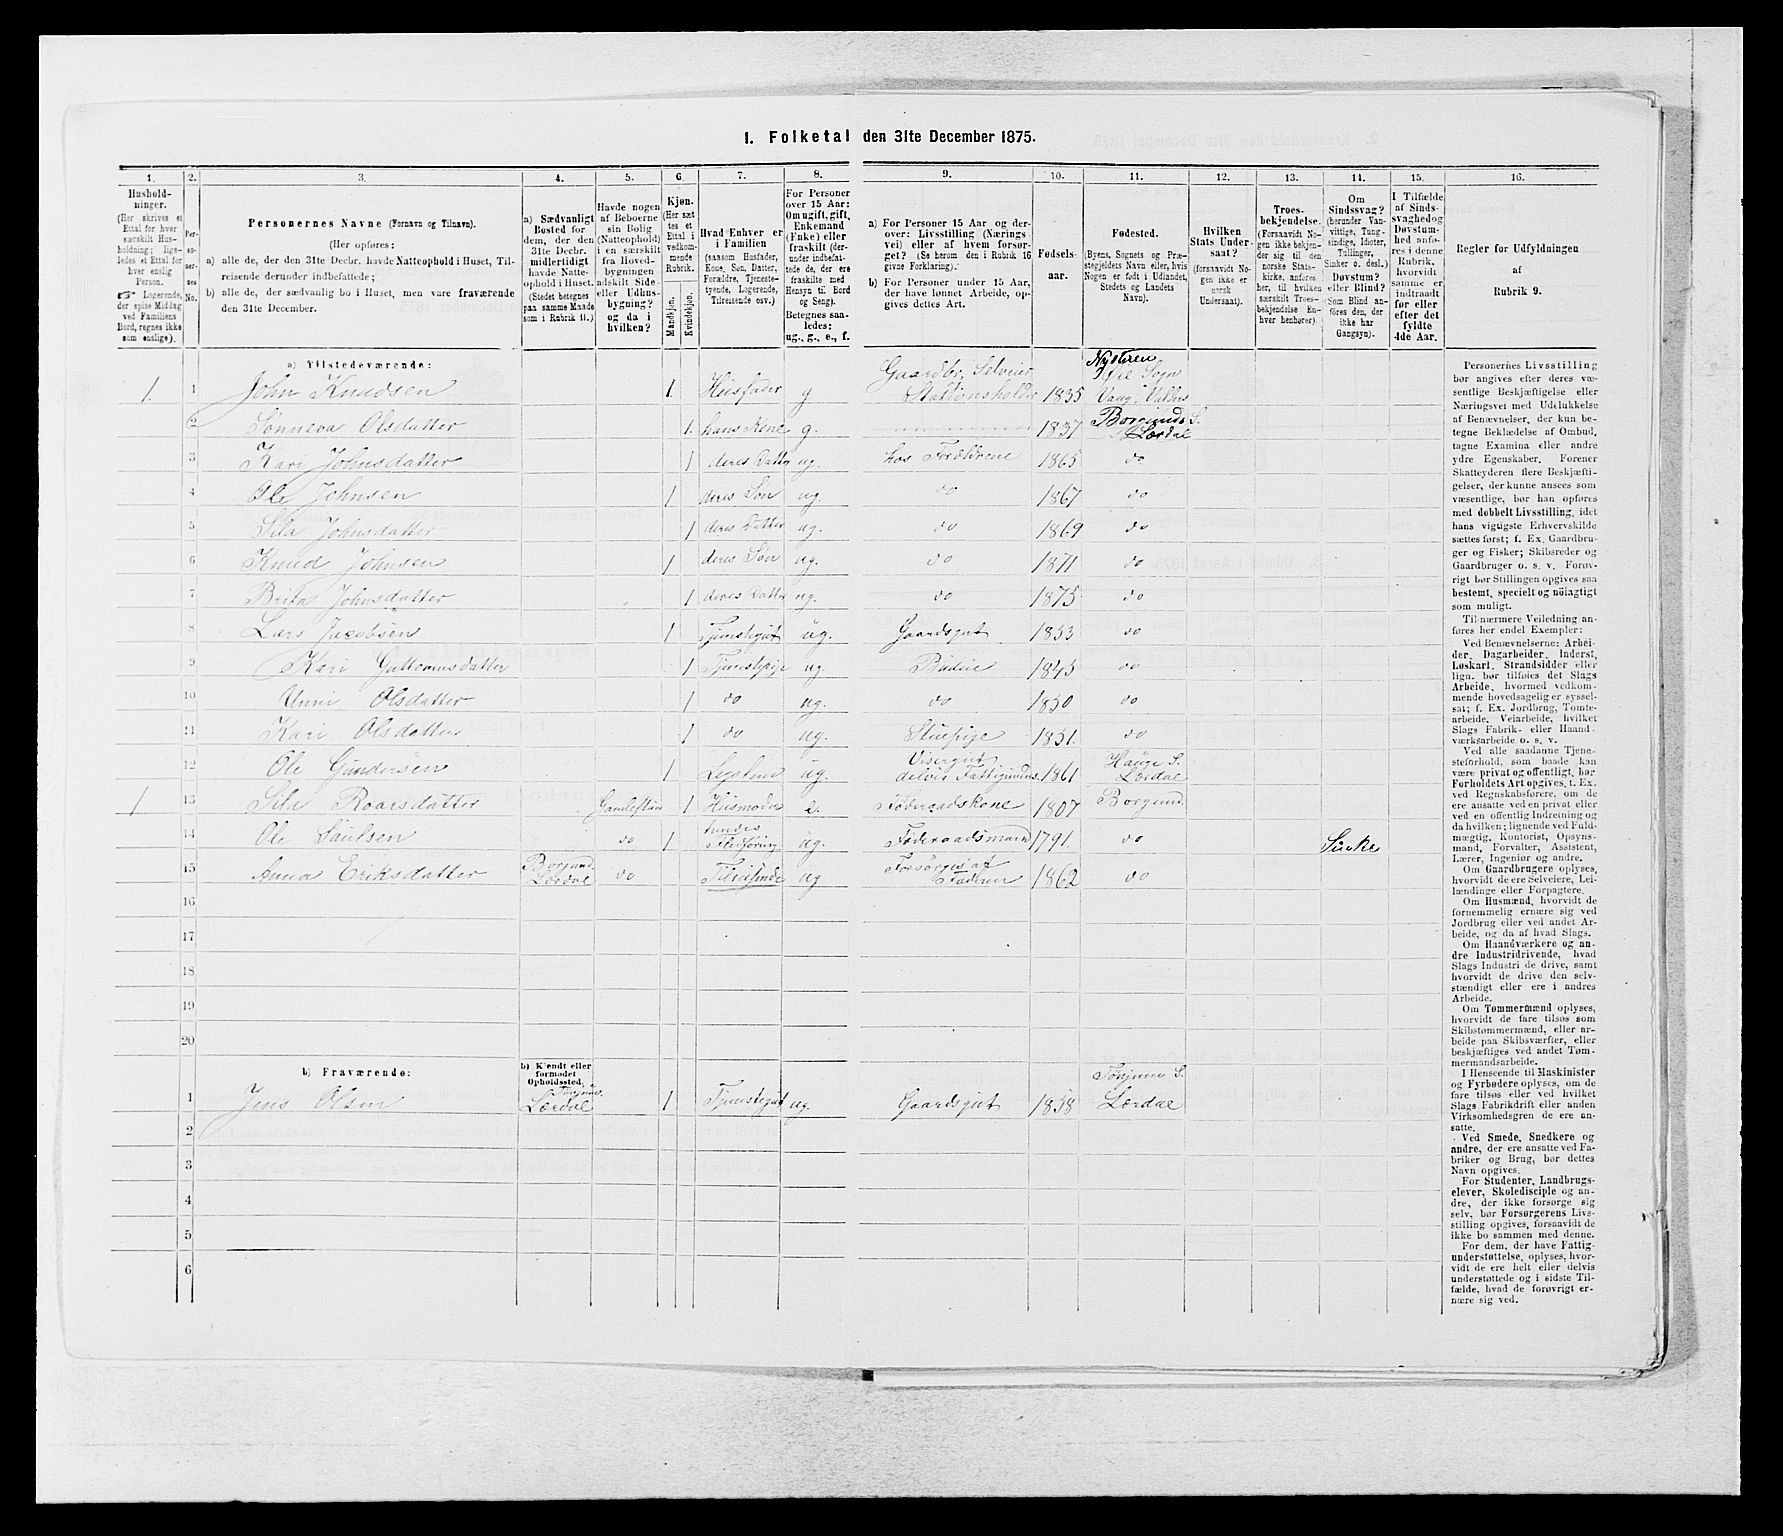 1. Folketal den 31te December 1875.
1. 2. 3. 4. 5. 6. 7. 8. 9. 10. 11. 12. 13. 14. 15. 16.
Husholdninger.
(Her skrives et Ettal for hver særskilt Husholdning; ligeledes et Ettal for hver enslig Person.
Logerende, der spise Middag ved Familiens Bord, regnes ikke som enslige).
Personernes No.
Personernes Navne (Fornavn og Tilnavn).
(Her opføres:
a) alle de, der den 31te Decbr. havde Natteophold i Huset, Tilreisende derunder indbefattede;
b) alle de, der sædvanlig bo i Huset, men vare fraværende den 31te December.
a) Sædvanligt Bosted for dem, der den 31te Decbr. midlertidigt havde Natteophold i Huset.
(Stedet betegnes paa samme Maade som i Rubrik 11.)
Havde nogen af Beboerne sin Bolig (Natteophold) i en særskilt fra Hovedbygningen adskilt Side- eller Udhusbygning? og da i hvilken?
Kjøn.
(Her sættes et Ettal i vedkommende Rubrik.
Mandkjøn.
Kvindekjøn.
Hvad Enhver er i Familien
(saasom Husfader, Kone, Søn, Datter, Forældre, Tjenestetyende, Logerende, Tilreisende osv.)
For Personer over 15 Aar: Om ugift, gift, Enkemand (Enke) eller fraskilt (derunder indbefattede de, der ere fraskilte med Hensyn til Bord og Seng).
Betegnes saaledes:
ug., g., e., f.
a) For Personer 15 Aar og derover: Livsstilling (Næringsvei) eller af hvem forsørget? (Se herom den i Rubrik 16 givne Forklaring).
b) For Personer under 15 Aar, der have lønnet Arbeide, opgives dettes Art.
Fødselsaar.
Fødested.
(Byens, Sognets og Præstegjeldets Navn eller, hvis Nogen er født i Udlandet, Stedets og Landets Navn).
Hvilken Stats Undersaat?
(forsaavidt Nogen ikke er norsk Undersaat).
Troesbekjendelse.
(Forsaavidt Nogen ikke bekjender sig til den norske Statskirke, anføres her, til hvilken særskilt Troesbekjendelse Enhver henhører).
Om Sindssvag?
(herunder Vanvittige, Tungsindige, Idioter, Tullinger, Sinker o. desl.)
Døvstum? eller Blind?
(Som Blind anføres den, der ikke har Gangsyn).
I Tilfælde af Sindssvaghed og Døvstumhed anføres i denne Rubrik, hvorvidt samme er indtraadt før eller efter det fyldte 4de Aar.
Regler for Udfyldningen
af
Rubrik 9.
a) Tilstedeværende:
1. 1 John Knudsen 1. Husfader g Gaardbr. Selveier Stationsholder 1835 Nysteren Øie Sogn Vang, Valders
2 Sønneva Olsdatter 1. hans Kone g. 1837 Borgunds S. Lærdal
3 Kari Johnsdatter 1 deres Datter ug. hos Forældrene 1865 do
4 Ole Johnsen 1 deres Søn ug. do 1867 do
5 Sila Johnsdatter 1 deres Datter ug. do 1869 do
6 Knud Johnsen 1 deres Søn ug. do 1871 do
7 Brita Johnsdatter 1 deres Datter ug. do 1875 do
8 Lars Jacobsen 1 Tjenstegut ug. Gaardsgut 1853 do
9 Kari Guttormsdatter 1 Tjenstepige ug. Budeie 1845 do
10 Unni Olsdatter 1 do ug. do 1850 do
11 Kari Olsdatter 1 do ug. Stuepige 1851. do
12 Ole Gundersen 1 Legdem ug. Visergut delvis Fattigunds. 1861 Hauge S. Lærdal
1 13 Sila Roarsdatter Gamlestuen 1 Husmoder e. Føderaadskone 1807 Borgund
14 Ole Paulsen do 1 hendes Fledføring ug. Føderaadsmand 1791. do Sinke
15 Anna Eriksdatter Borgund Lærdal do Tilreisende ug Forsørges af Faderen 1862 do
16
17
18
19
20
b) Fraværende:
b) Kjendt eller formodet Opholdssted.
1 Jens Olsen Tønjum Lærdal 1 Tjenstegut ug. Gaardsgut 1858 Tønjum S. Lærdal
2
3
4
5
6
Personernes Livsstilling
bør angives efter deres væ-
sentlige Beskjæftigelse eller
Næringsvei med Udelukkelse
af Benævnelser, der kun be-
tegne Beklædelse af Ombud,
tagne Examina eller andre
ydre Egenskaber. Forener
Skatteyderen flere Beskjæfti-
gelser, der kunne ansees som
væsentlige, bør han opføres
med dobbelt Livsstilling, idet
hans vigtigste Erhvervskilde
sættes først; f. Ex. Gaardbru-
ger og Fisker; Skibsreder og
Gaardbruger o. s. v. Forøv-
rigt bør Stillingen opgives saa
bestemt, specielt og nöiagtigt
som muligt.
Til nærmere Veiledning an-
føres her endel Exempler:
Ved Benævnelserne: Arbei-
der, Dagarbeider, Inderst,
Løskarl, Strandsidder eller
lign. bør tilføies det Slags
Arbeide, hvormed vedkom-
mende hovedsagelig er syssel-
sat; f. Ex. Jordbrug, Tomte-
arbeide, Veiarbeide, hvilket
Slags Fabrik- eller Haand-
værksarbeide o. s. v.
Ved alle saadanne Tjene-
steforhold, som baade kan
være privat og offentligt, bør
Forholdets Art opgives, t. Ex.
ved Regnskabsførere, om de
ere ansatte ved en privat eller
ved en offentlig Indretning og
da hvilken; lignende ved Fuld-
mægtig, Kontorist, Opsyns-
mand, Forvalter, Assistent,
Lærer, Ingeniør og andre.
Om Gaardbrugere oplyses,
hvorvidt de ere Selveiere, Lei-
lændinge eller Forpagtere.
Om Husmænd, hvorvidt de
fornemmelig ernære sig ved
Jordbrug eller ved andet Ar-
beide, og da af hvad Slags.
Om Haandværkere og an-
dre Industridrivende, hvad
Slags Industri de drive, samt
hvorvidt de drive den selv-
stændigt eller ere i andres
Arbeide.
Om Tømmermænd oplyses,
hvorvidt de fare tilsøs som
Skibstømmermænd, eller ar-
beide paa Skibsværfter, eller
beskjæftiges ved andet Tøm-
mermandsarbeide.
I Henseende til Maskinister
og Fyrbødere oplyses, om de
fare tilsøs eller ved hvilket
Slags Fabrikdrift eller anden
Virksomhedsgren de ere an-
satte.
Ved Smede, Snedkere og
andre, der ere ansatte ved Fa-
briker og Brug, bør dettes
Navn opgives.
For Studenter, Landbrugs-
elever, Skoledisciple og an-
dre, der ikke forsørge sig
selv, bør Forsørgerens Livs-
stilling opgives, forsaavidt de
ikke bo sammen med denne.
For dem, der have Fattig-
understøttelse, oplyses, hvor-
vidt de ere helt eller delvis
understøttede og i sidste Til-
fælde, hvad de forøvrigt er-
nære sig ved.